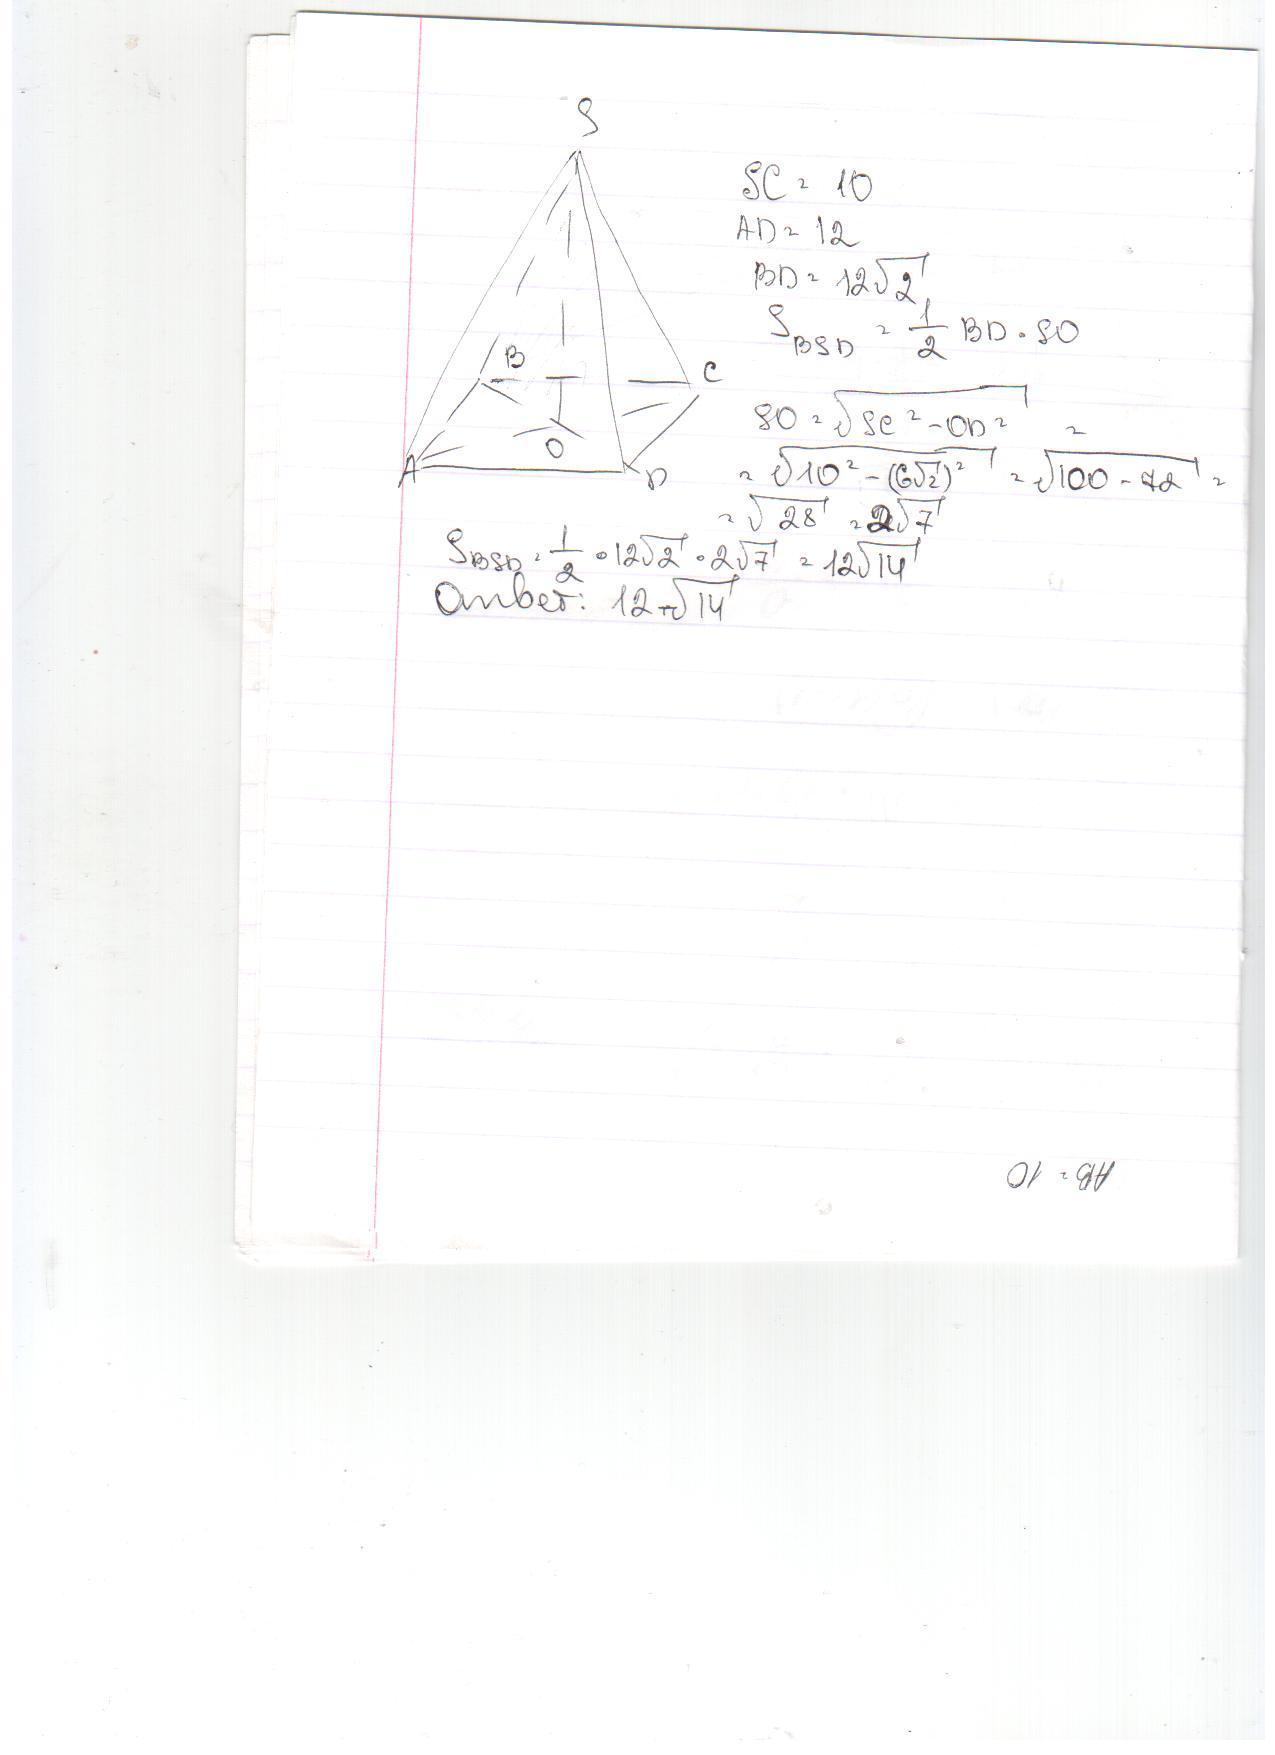 S
SC = 10
AD = 12
BD = 12√2
S_BSD = 1/2 BD · SO
B
C
SO = √SC² - OD² =
O
A
D
= √10² - (6√2)² = √100 - 72 =
= √28 = 2√7
S_BSD = 1/2 · 12√2 · 2√7 = 12√14
Ответ: 12√14
AB = 10